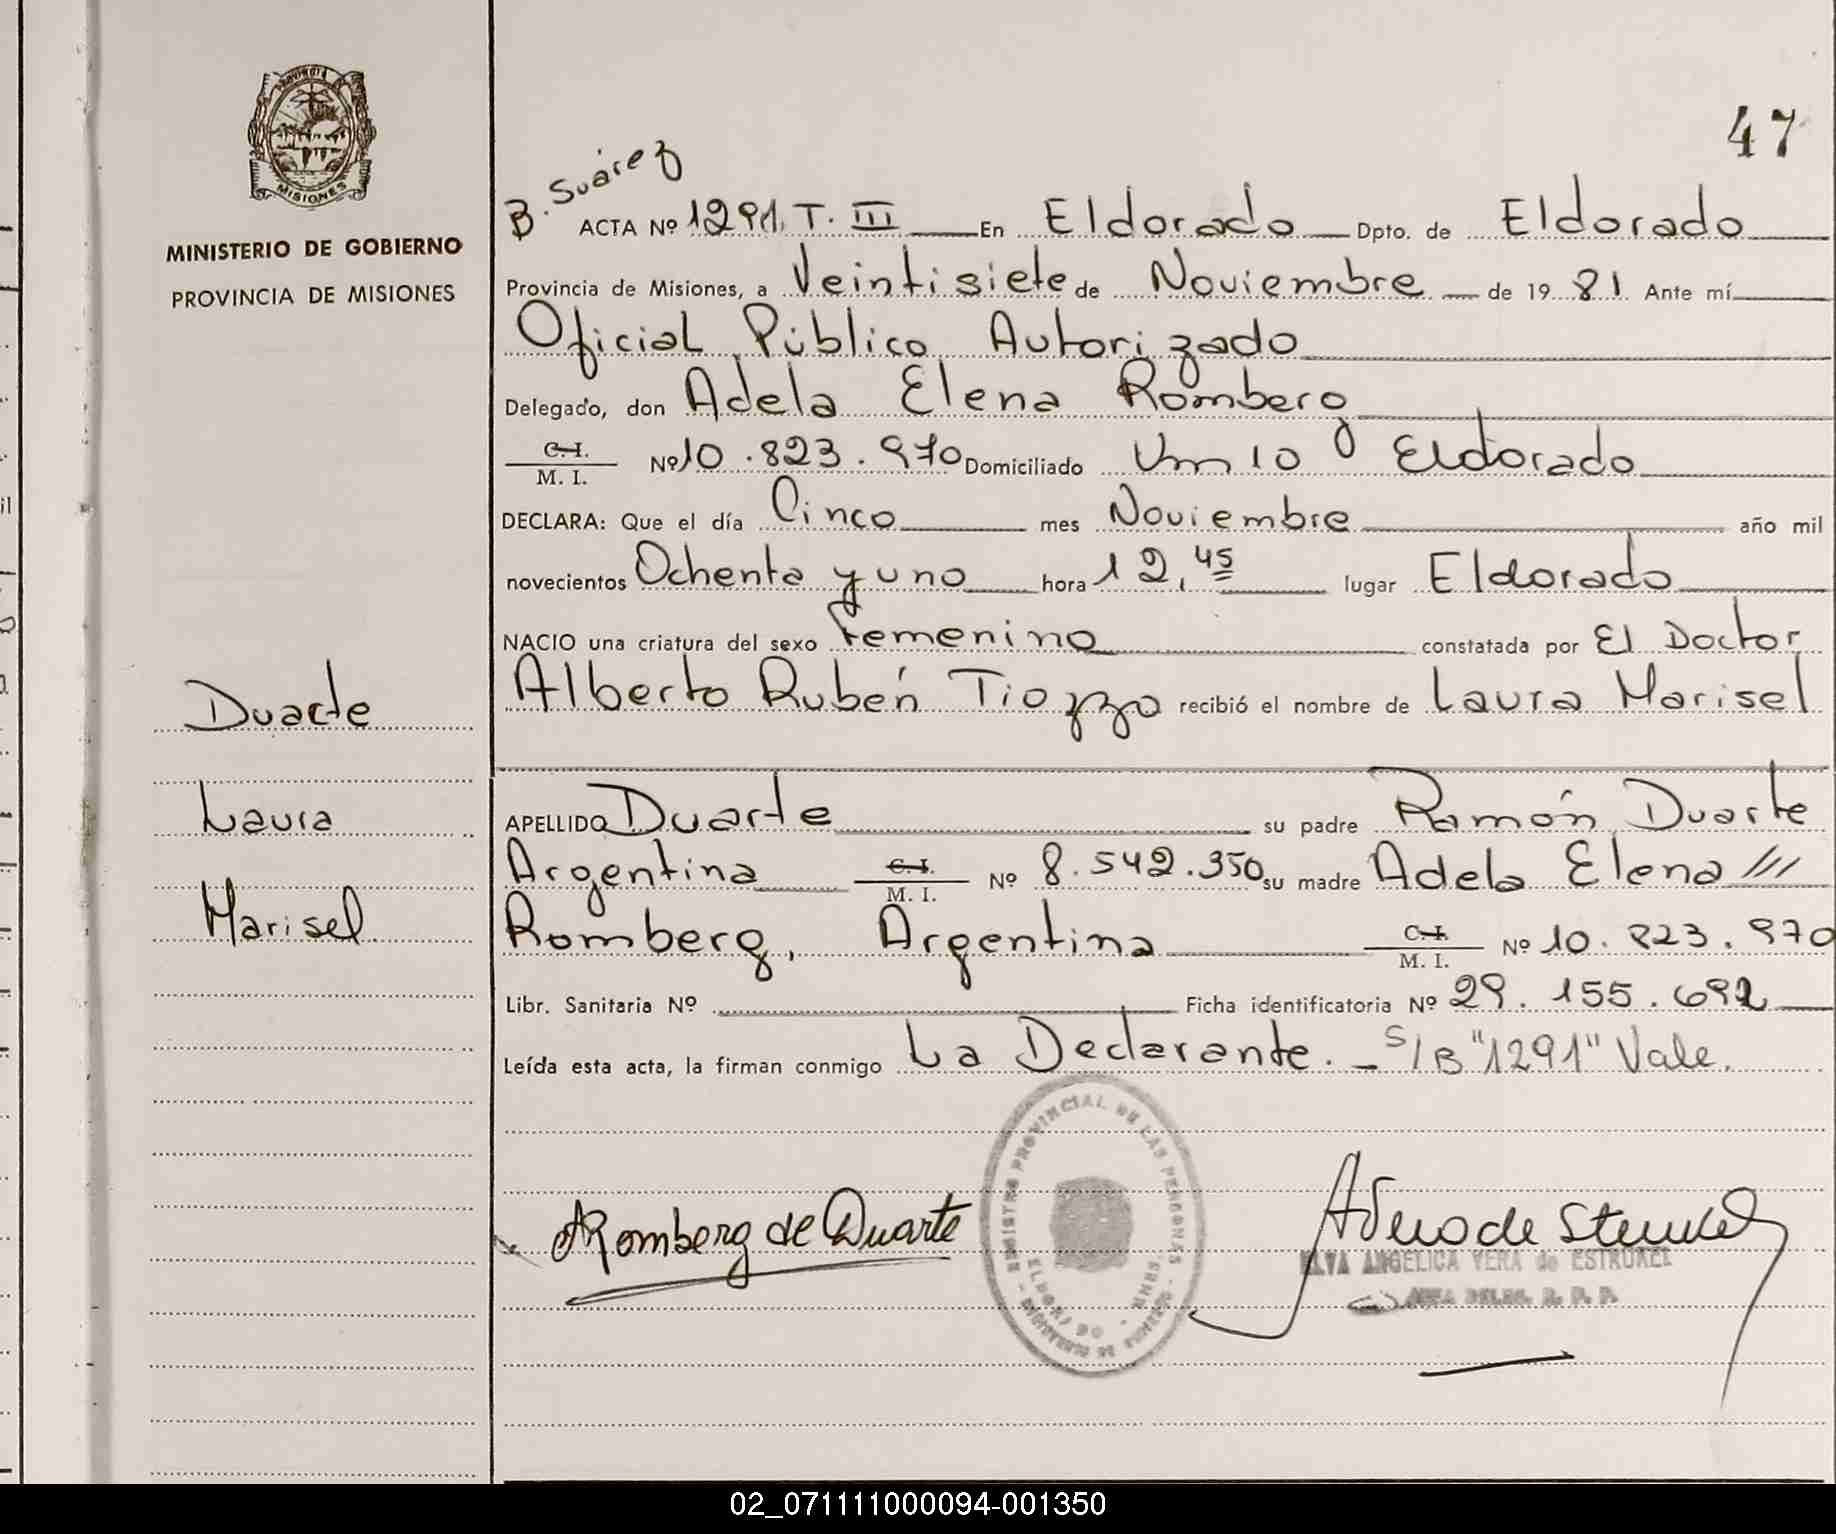 PROVINCIA
MISIONES
MINISTERIO DE GOBIERNO
PROVINCIA DE MISIONES
Duarte
Laura
Marisel
47
B. Suárez
ACTA Nº 1291, T. III En Eldorado Dpto. de Eldorado
Provincia de Misiones, a Veintisiete de Noviembre de 19 81 Ante mí
Oficial Público Autorizado
Delegado, don Adela Elena Romberg
C. I. / M. I. Nº 10.823.970 Domiciliado Km 10 Eldorado
DECLARA: Que el día Cinco mes Noviembre año mil
novecientos Ochenta y uno hora 12,45 lugar Eldorado
NACIO una criatura del sexo Femenino constatada por El Doctor
Alberto Rubén Tiozzo recibió el nombre de Laura Marisel
APELLIDO Duarte su padre Ramón Duarte
Argentina C. I. / M. I. Nº 8.542.350 su madre Adela Elena ///
Romberg, Argentina C. I. / M. I. Nº 10.823.970
Libr. Sanitaria Nº Ficha identificatoria Nº 29.155.692
Leída esta acta, la firman conmigo La Declarante. - S/B "1291" Vale.
REGISTRO PROVINCIAL DE LAS PERSONAS
ELDORADO
ARomberg de Duarte
ELVA ANGELICA VERA de ESTRUKEL
02_071111000094-001350